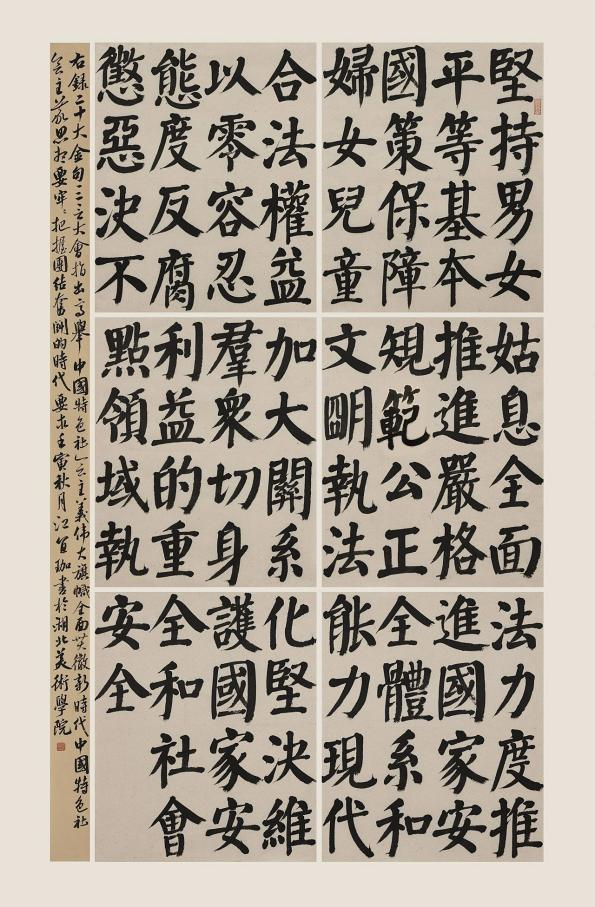 堅持男女
平等基本
國策保障
婦女兒童
合法權益
以零容忍
態度反腐
懲惡決不
姑息全面
推進嚴格
規範公正
文朙執法
加大關系
羣衆切身
利益的重
點領域執
法力度推
進國家安
全體系和
能力現代
化堅決維
護國家安
全和社會
安全
右錄二十大金句大會指出高舉中國特色社會主義偉大旗幟全面貫徹新時代中國特色社
會主義思想要牢〻把握團結奮鬥的時代要求壬寅秋月江書於湖北美術學院